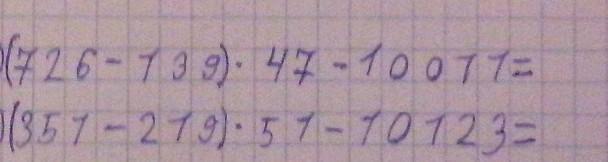 )(726-139)·47-10011=
)(351-219)·51-10123=